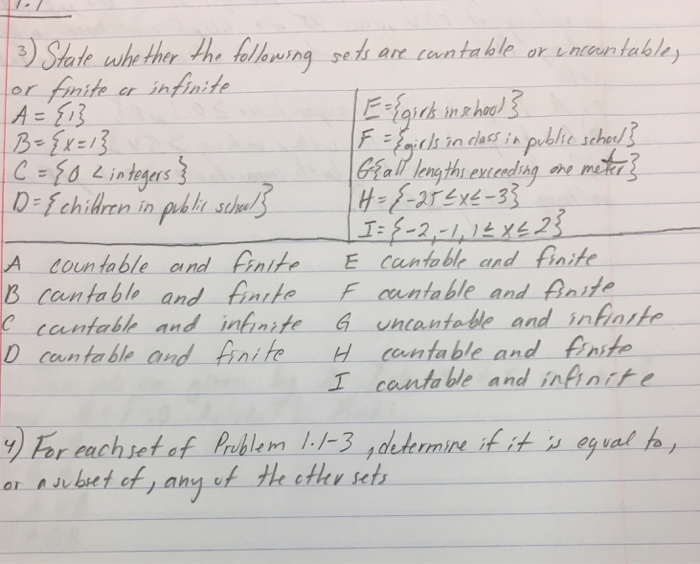 1.1
3) State whether the following sets are countable or uncountable,
or finite or infinite
A = {1}
B = {x=1}
C = {0 < integers}
D = {children in public school}
E = {girls in school}
F = {girls in class in public school}
G{all lengths exceeding one meter}
H = {-25 ≤ x ≤ -3}
I = {-2, -1, 1 ≤ x ≤ 2}
A countable and finite
B countable and finite
C countable and infinite
D countable and finite
E countable and finite
F countable and finite
G uncountable and infinite
H countable and finite
I countable and infinite
4) For each set of Problem 1.1-3, determine if it is equal to,
or a subset of, any of the other sets